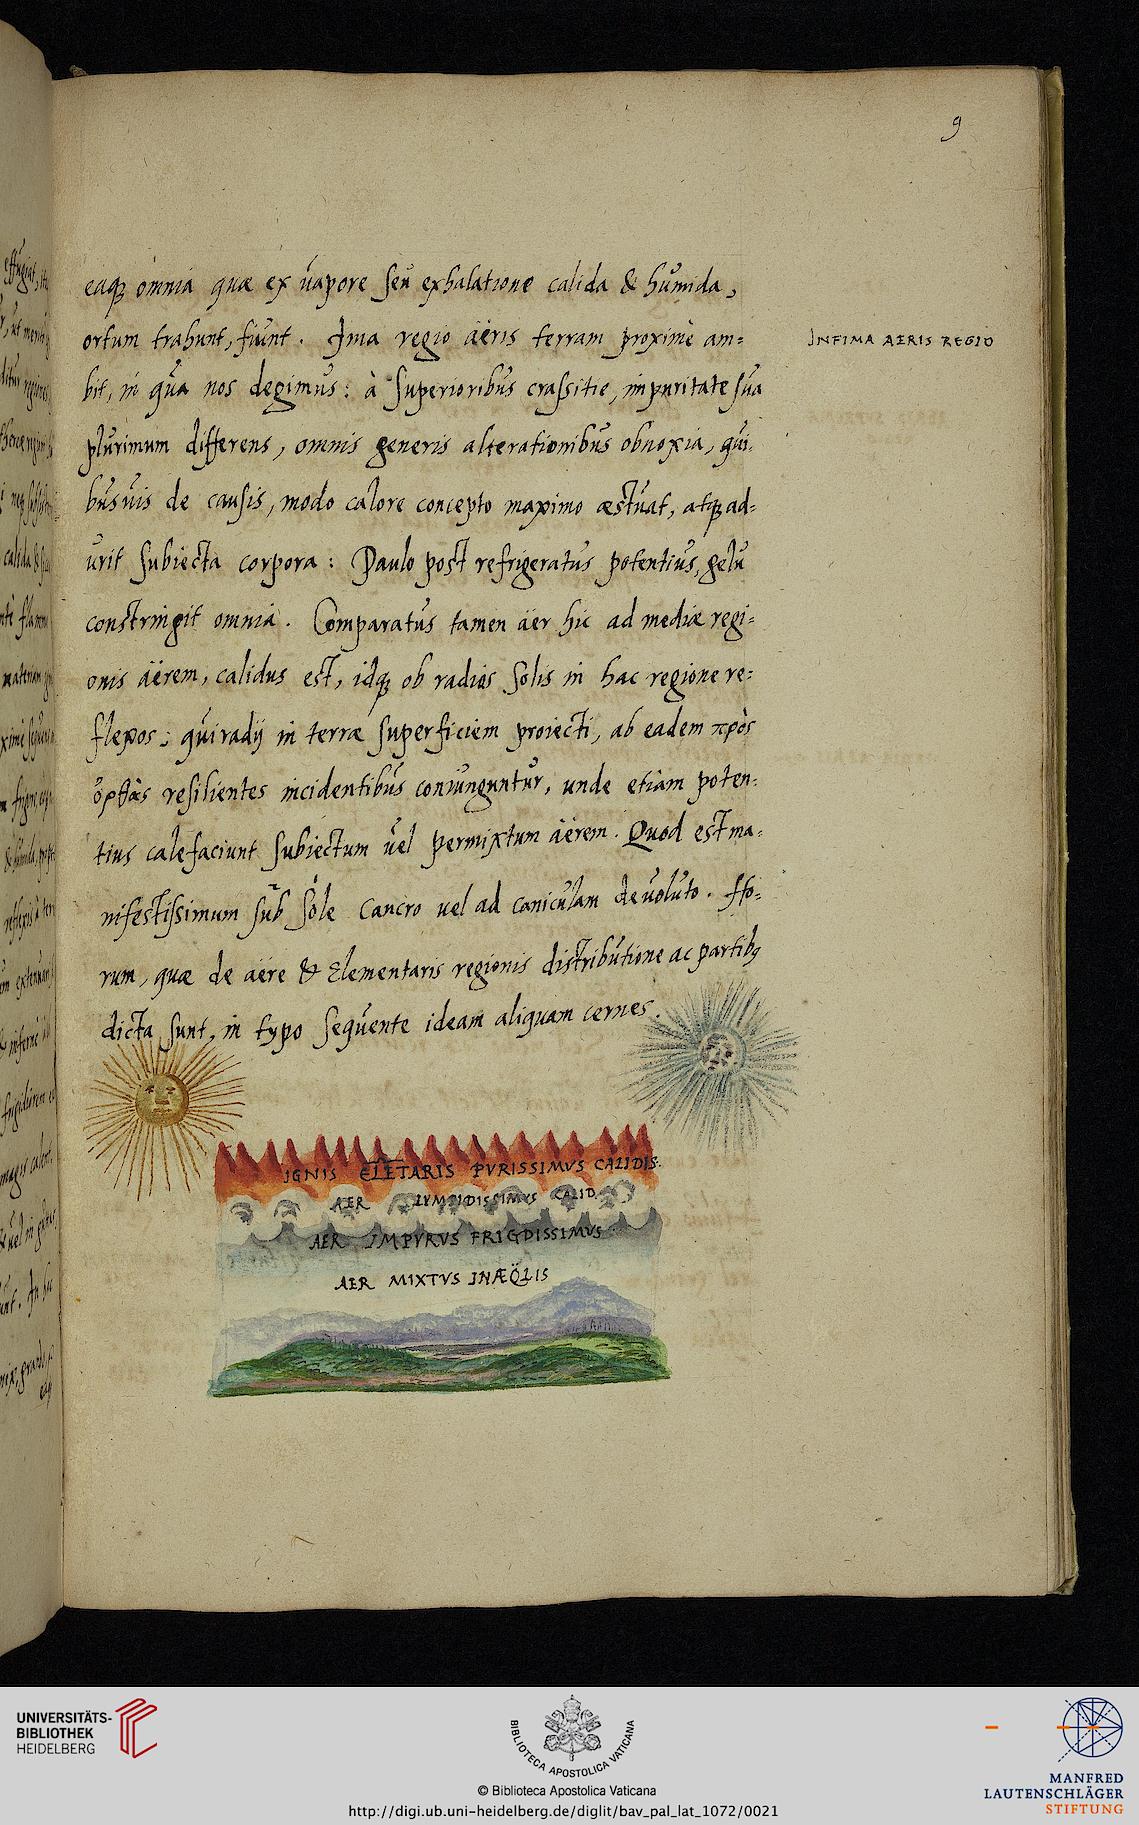 9
eaq̃ omnia quæ ex vapore seu exhalatione calida & humida,
ortum trahunt, fiunt. Ima regio aëris terram proximè am=
bit, in qua nos degimus: à superioribus crassitie, impuritate sua
plurimum differens, omnis generis alterationibus obnoxia, qui-
busuis de causis, modo calore concepto maximo æstuat, atq̃ ad=
urit subiecta corpora: Paulo post refrigeratus potentius, gelu
constringit omnia. Comparatus tamen äer hic ad mediæ regi=
onis äërem, calidus est, idq̃ ob radios solis in hac regione re=
flexos: qui radij in terræ superficiem proiecti, ab eadem πρὸς
ὀρθὰς resilientes incidentibus coniunguntur, unde etiam poten=
tius calefaciunt subiectum vel permixtum äërem. Quod est ma=
nifestissimum sub sole Cancro uel ad caniculam deuoluto. Ho=
rum, quæ de äëre & Elementaris regionis distributione ac partibꝫ
dicta sunt, in typo sequente ideam aliquam cernes.
INFIMA AERIS REGIO
IGNIS ELETARIS PVRISSIMVS CALIDIS.
AER LYMPIDISSIMVS CALID
AER IMPVRVS FRIGDISSIMVS
AER MIXTVS INÆQ̈LIS
UNIVERSITÄTS-
BIBLIOTHEK
HEIDELBERG
BIBLIOTECA APOSTOLICA VATICANA
© Biblioteca Apostolica Vaticana
http://digi.ub.uni-heidelberg.de/diglit/bav_pal_lat_1072/0021
MANFRED
LAUTENSCHLÄGER
STIFTUNG